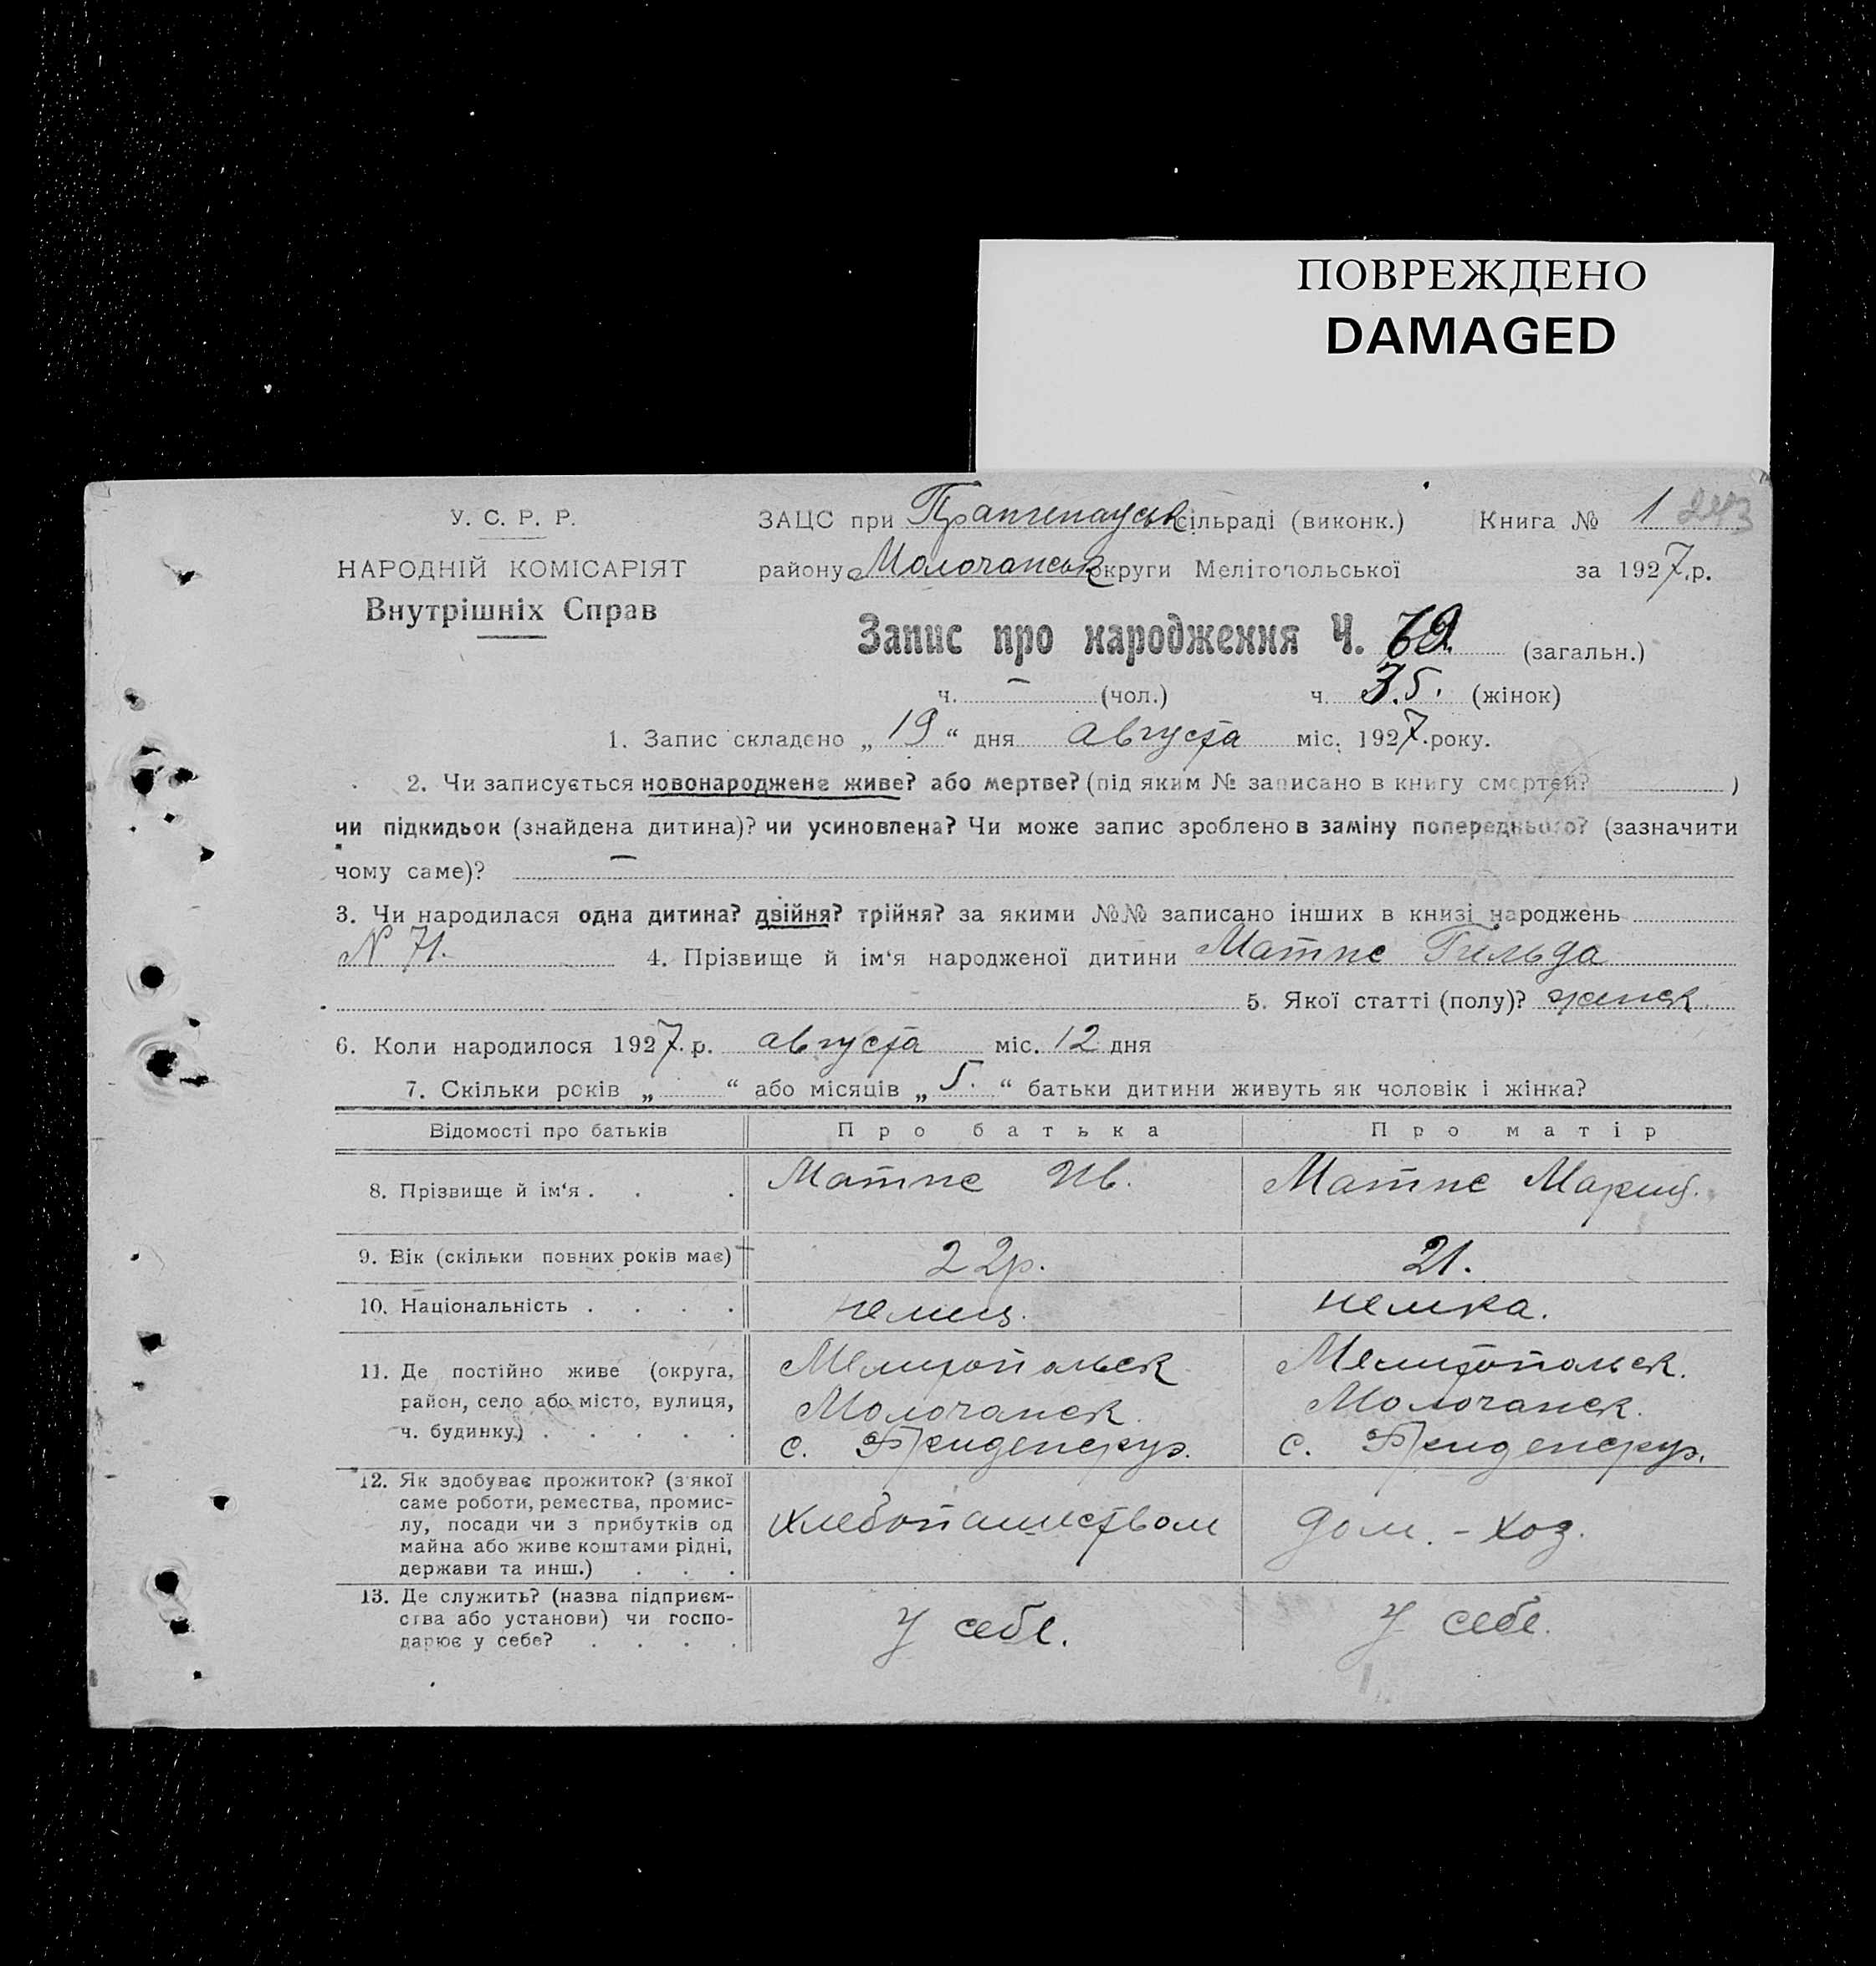 ПОВРЕЖДЕНО
DAMAGED
У. С. Р. Р.
НАРОДНІЙ КОМІСАРІЯТ
Внутрішніх Справ
ЗАЦС при Прангенауськ сільраді (виконк.) Книга № 1 243
району Молочанськ округи Мелітопольської за 1927.р.
Запис про народження Ч. 72 (загальн.)
ч. – (чол.) ч. 35. (жінок)
1. Запис складено „ 19 “ дня августа міс. 1927.року.
2. Чи записується новонароджене живе? або мертве? (під яким № записано в книгу смертей? )
чи підкидьок (знайдена дитина)? чи усиновлена? Чи може запис зроблено в заміну попереднього? (зазначити
чому саме)? –
3. Чи народилася одна дитина? двійня? трійня? за якими №№ записано інших в книзі народжень
N 71. 4. Прізвище й ім‘я народженої дитини Матис Гильда
5. Якої статті (полу)? женск.
6. Коли народилося 1927.р. августа міс. 12 дня
7. Скільки років „ “ або місяців „ 5. “ батьки дитини живуть як чоловік і жінка?
Відомості про батьків Про батька Про матір
8. Прізвище й ім‘я . . . Матис Ив. Матис Мария.
9. Вік (скільки повних років має) 22р. 21.
10. Національність . . . . немец. немка.
11. Де постійно живе (округа, район, село або місто, вулиця, ч. будинку.) . . . . .
Мелитопольск Мелитопольск.
Молочанск. Молочанск.
с. с.
12. Як здобуває прожиток? (з якої
саме роботи, ремества, промис-
лу, посади чи з прибутків од
майна або живе коштами рідні,
держави та инш.) . . .
хлебопашеством дом. - хоз.
13. Де служить? (назва підприєм-
ства або установи) чи госпо-
дарює у себе? . . . .
У себе. У себе.